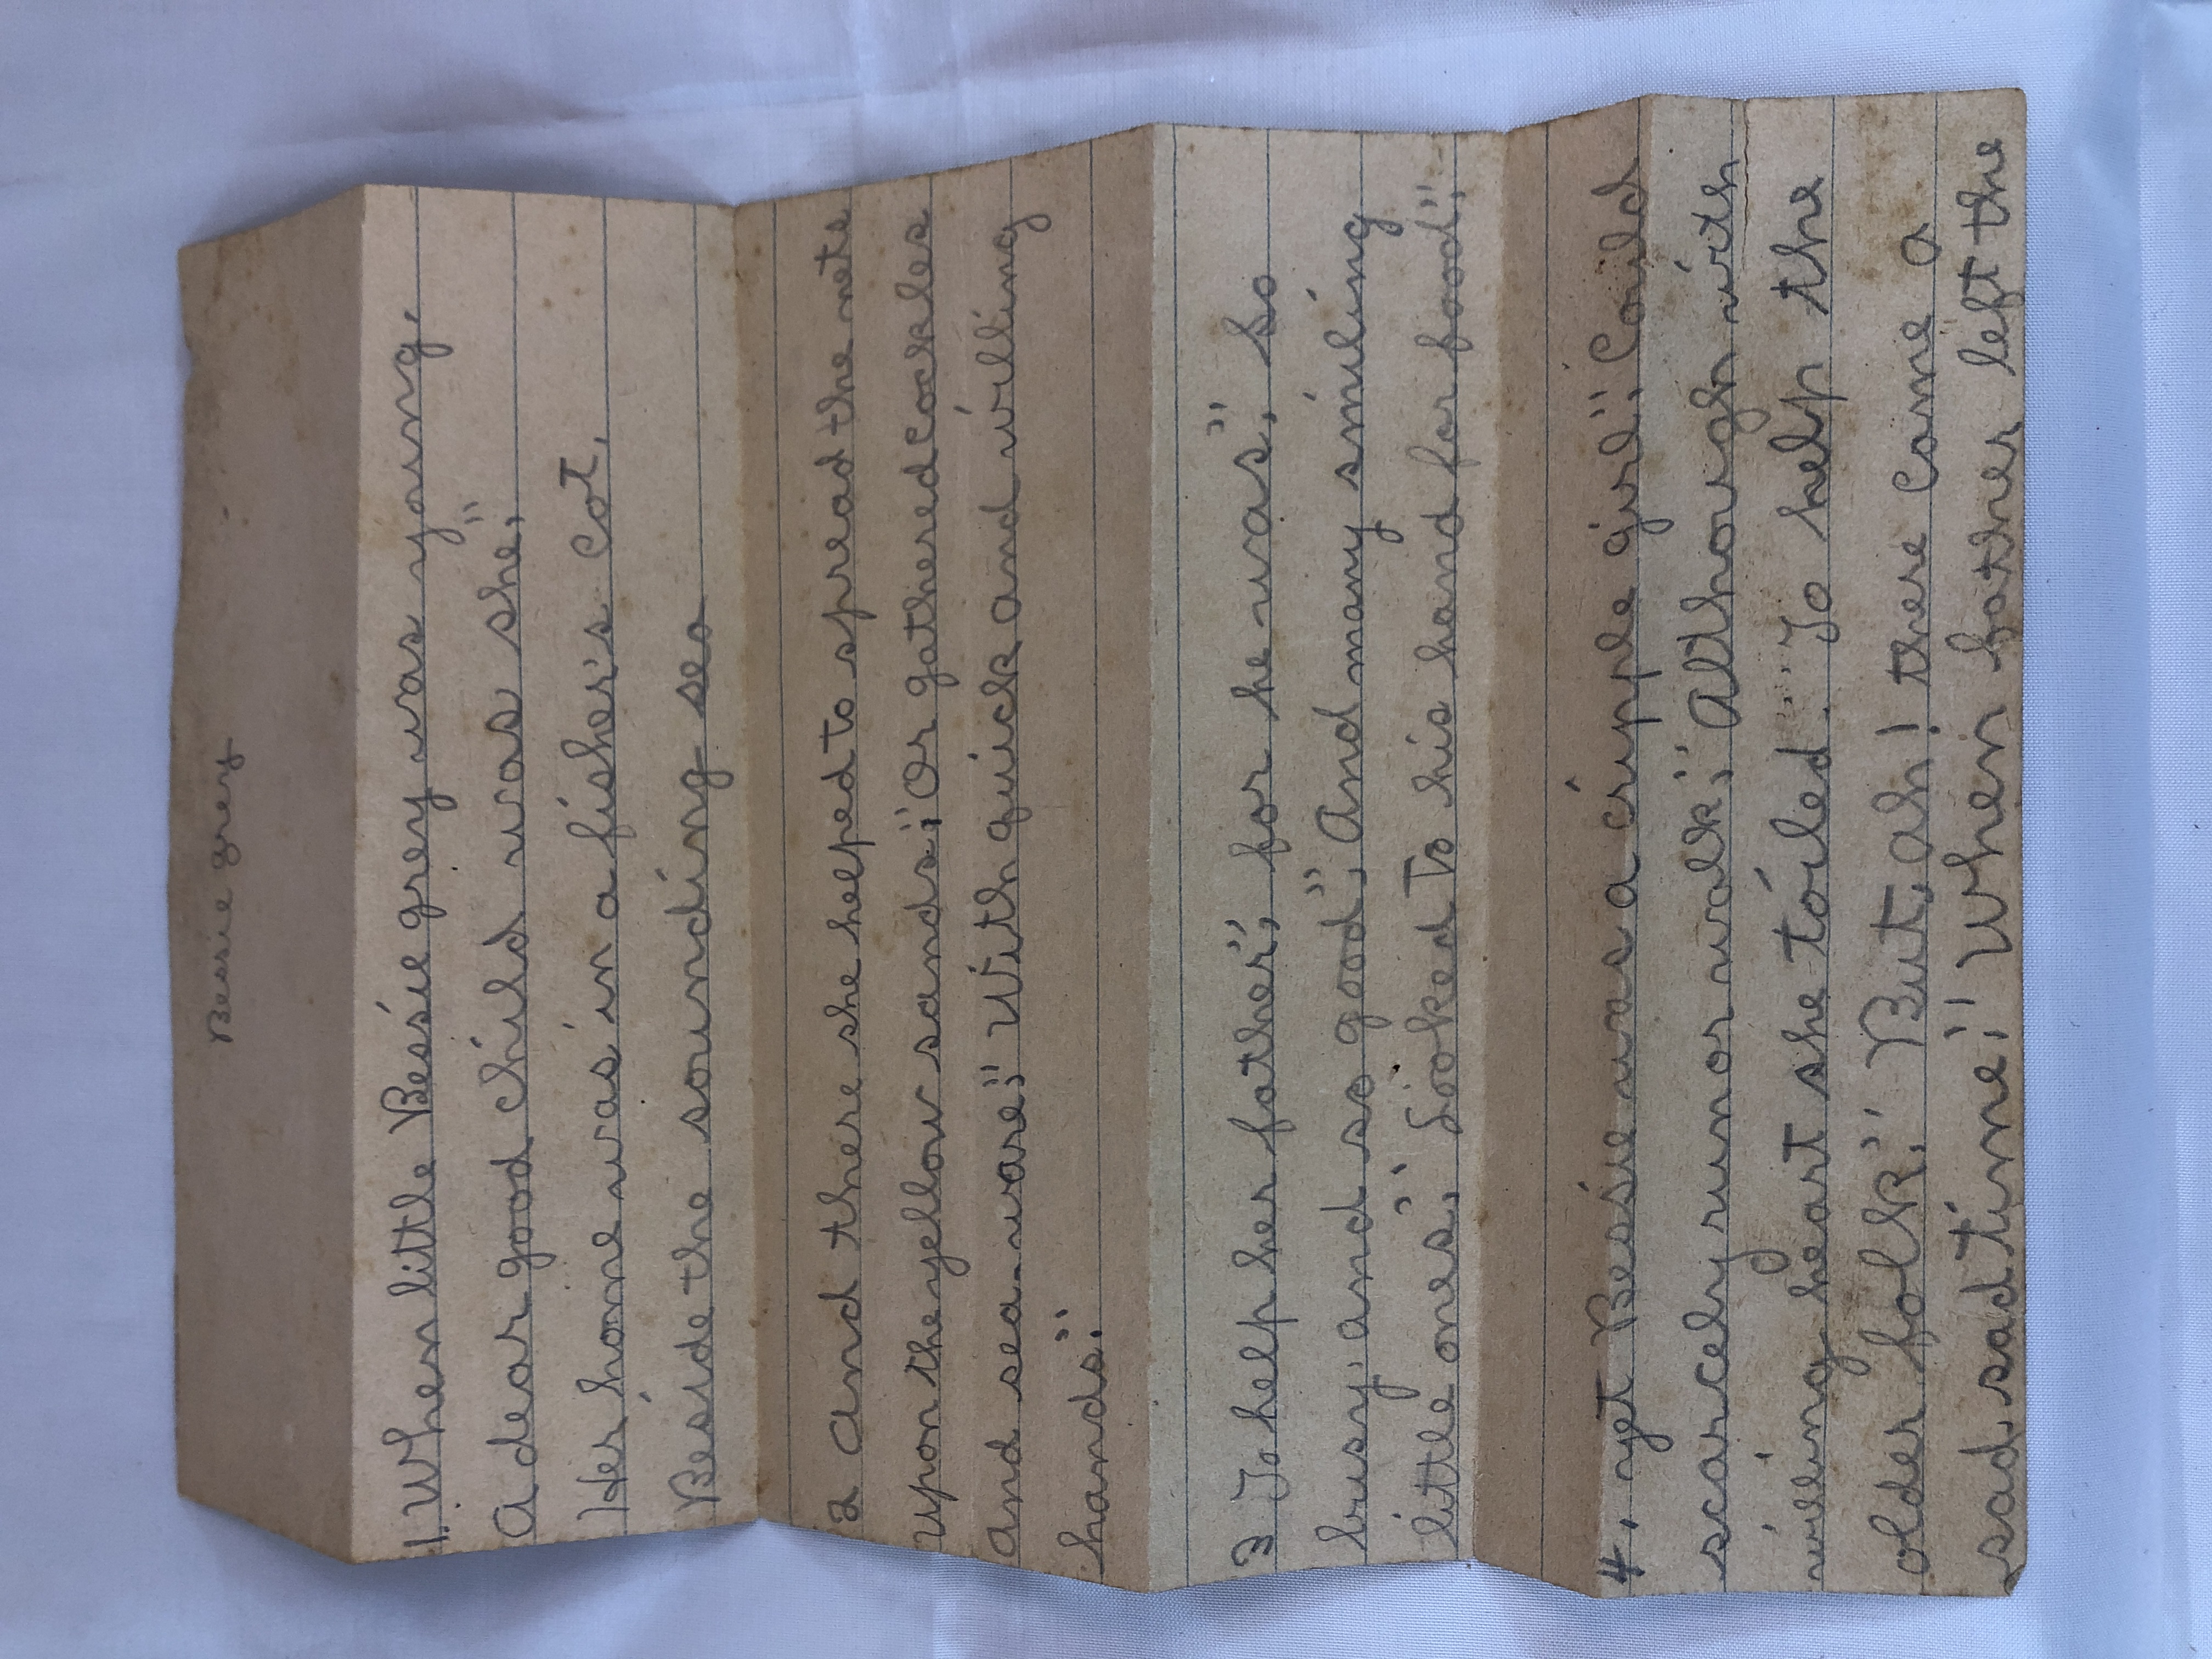 Bessie grey
1. When little Bessie grey was young.
A dear good child was she;"
Her home was in a fisher's cot.
Beside the sounding sea
2 And there she helped to spread the nets
upon the yellow sands;" Or gathered cockles
and sea-ware;" With quick and willing
hands."
3 To help her father", for he was," So
busy, and so good", And many smiling
little ones," Looked to his hand for food."
4. yet Bessie was a cripple girl." Could
scarcely run or walk;" Although with
willing heart she toiled." To help the
older folk." But, ah! there came a
sad, sad time;" When father left the